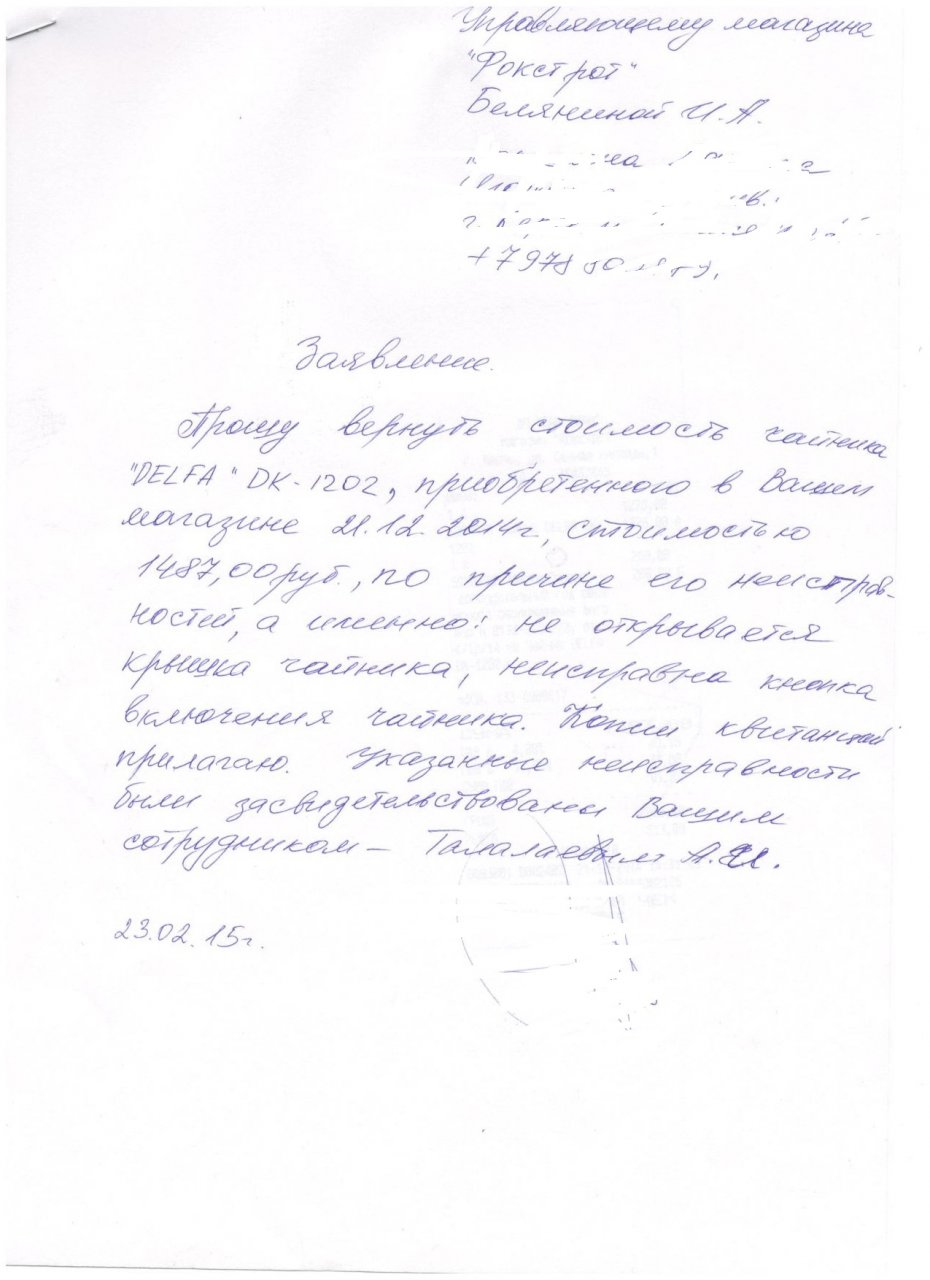 Управляющему магазина
"Фокстрот"
Беляниной И.А.
+7978
Заявление.
Прошу вернуть стоимость чайника
"DELFA" DK-1202, приобретенного в Вашем
магазине 21.12.2014г, стоимостью
1487,00 руб., по причине его неисправ-
ностей, а именно: не открывается
крышка чайника, неисправна кнопка
включения чайника. Копии квитанций
прилагаю. Указанные неисправности
были засвидетельствованы Вашим
сотрудником – Талалаевым А.И.
23.02.15г.